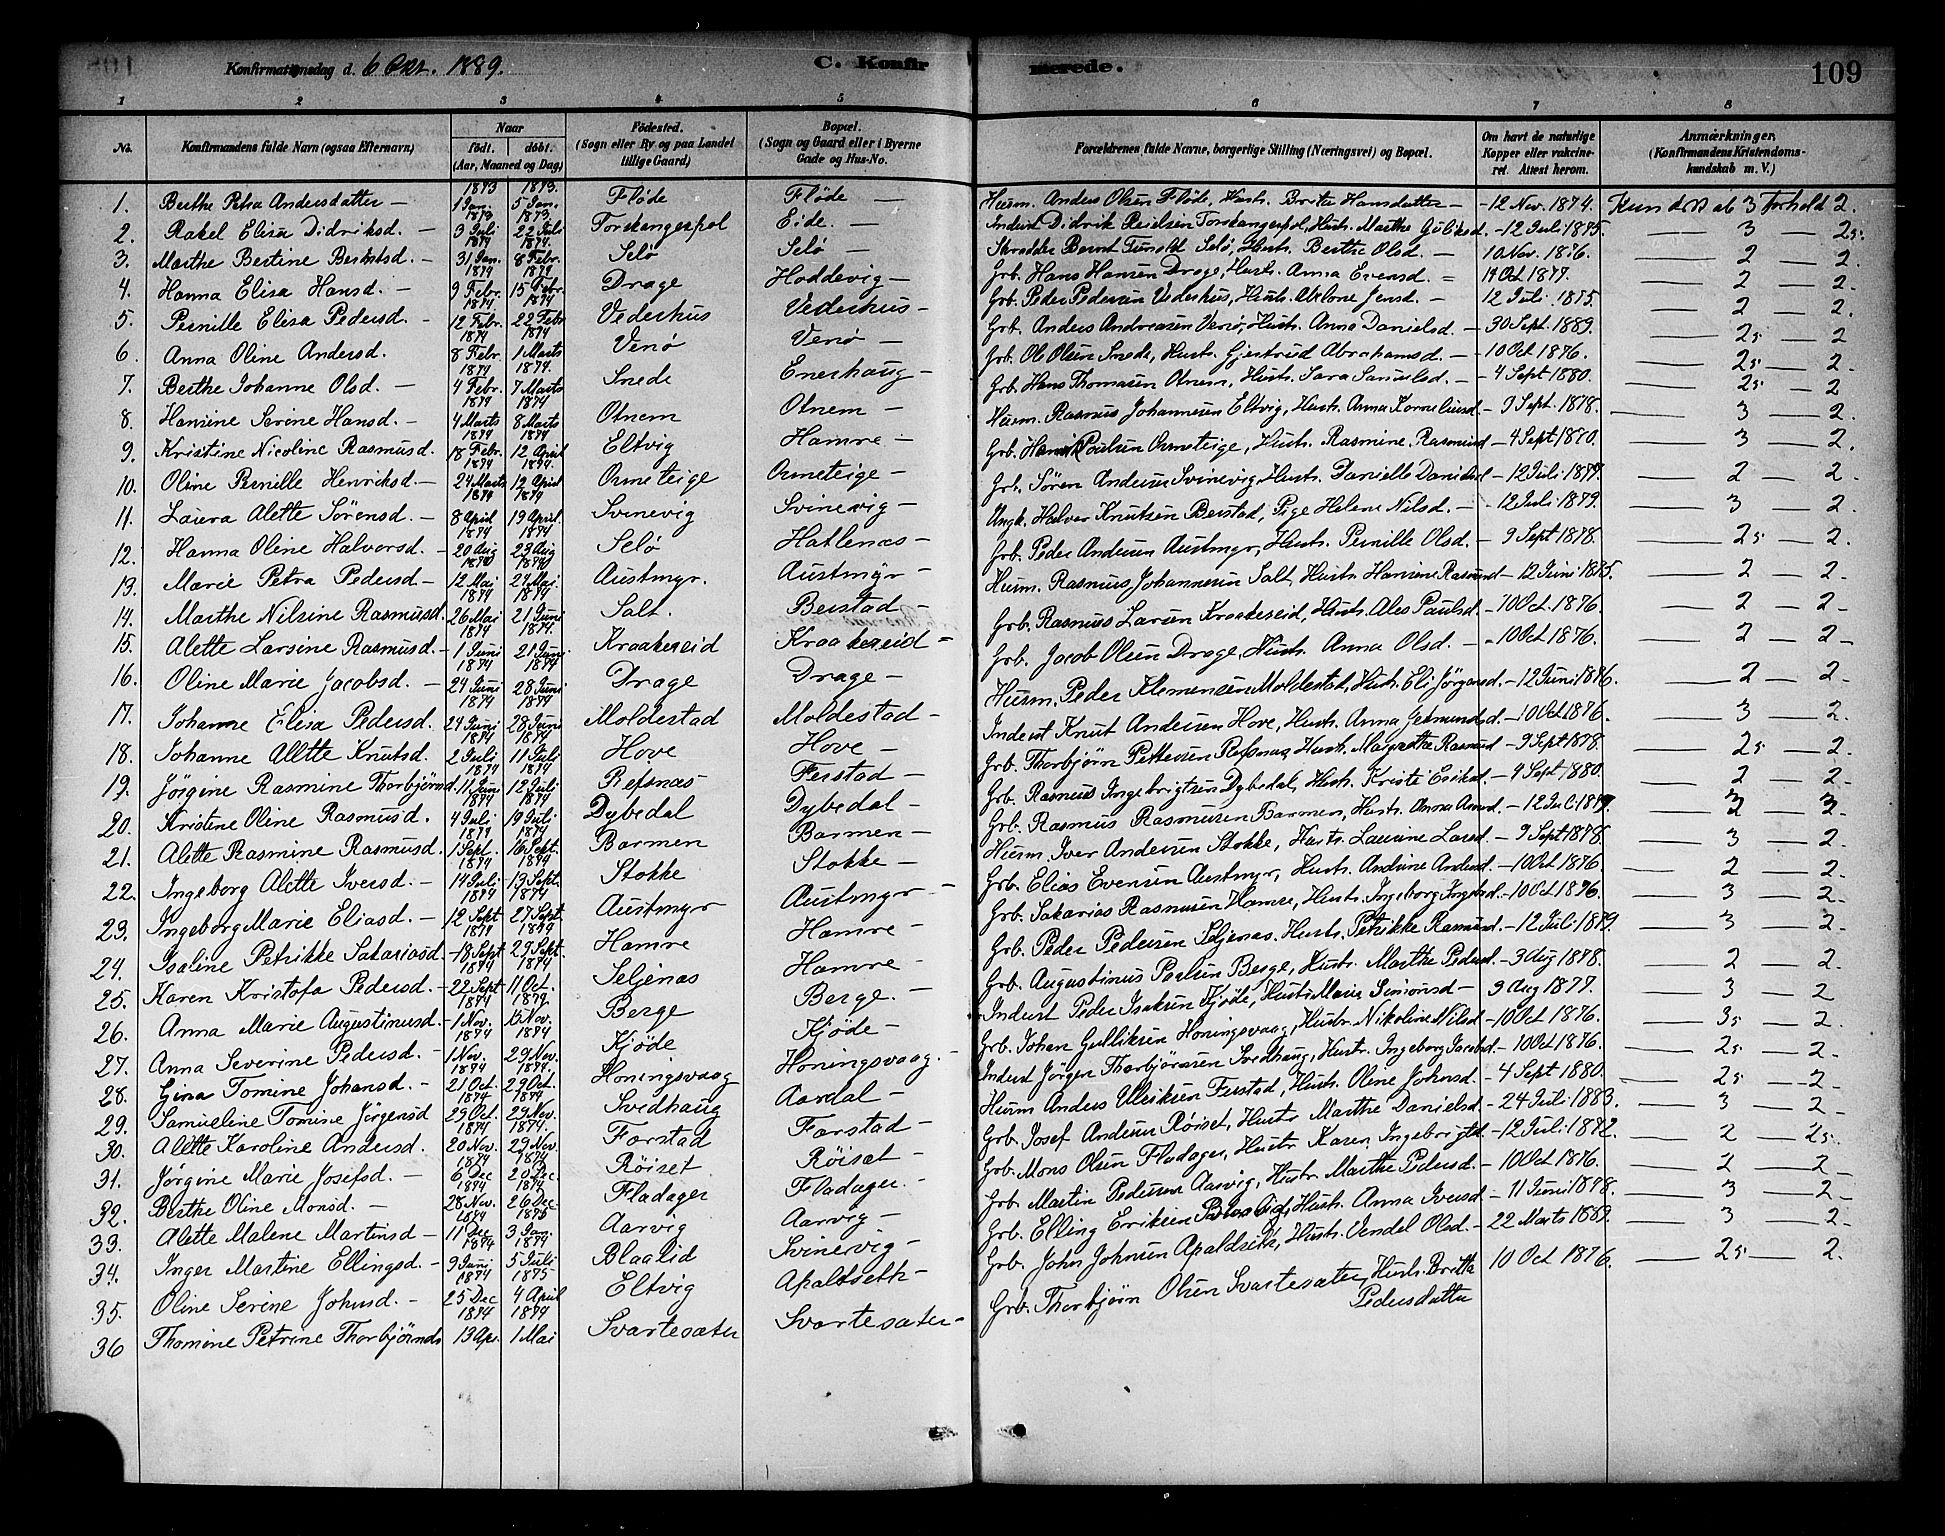 Konfirmationsdag d. 6 Okt. 1889. C. Konfirmerede. 109
1 2 3 4 5 6 7 8
No. Konfirmandens fulde Navn (ogsaa Efternavn) Naar födt. döbt. (Aar, Maaned og Dag) Födested. (Sogn eller By og paa Landet tillige Gaard) Bopæl. (Sogn og Gaard eller i Byerne Gade og Hus-No. Forældrenes fulde Navne, borgerlige Stilling (Næringsvei) og Bopæl. Om havt de naturlige Kopper eller vakcineret. Attest herom. Anmærkninger. (Konfirmandens Kristendomskundskab m. V.)
1. Berthe Petra Andersdatter — 1873 1 Jan. 1873. 5 Jan. Flöde Flöde — Husm. Anders Olsen Flöde, Hust. Berthe Hansdatter — 12 Nov. 1874. Kundskab 3 Forhold 2.
2. Rakel Elisa Didriksd. — 1873 3 Juli 1873. 22 Juli Torskangerpol Eide. — Inderst Didrik Torskangerpol, Hust. Marthe Guliksd. — 12 Juli 1875. — 3 — 25.
3. Marthe Bertine Berntsd. — 1874 31 Jan. 1874. 8 Febr. Selö Selö — Skredder Bernt Selö, Hust. Berthe Olsd. — 10 Nov. 1876. — 2 — 2.
4. Hanna Elisa Hansd. — 1874 9 Febr. 1874 15 Febr. Drage Hoddevig — Grb. Hans Hansen Drage, Hust. Anna Evensd. — Oct. 1877. — 2 — 2.
5. Pernille Elisa Pedersd. — 1874 12 Febr. 1874 22 Febr Vederhus Vederhus — Grb. Peder Pedersen Vederhus, Hust. Abelone Jensd. — 12 Juli 1875. — 2 — 2.
6. Anna Oline Andersd. 1874 8 Febr. 1874 1 Marts Venö Venö — Grb. Anders Andreasen Venö, Hust. Anna Danielsd. — 30 Sept. 1889. — 25 — 2
7. Berthe Johanne Olsd. — 1874 4 Febr. 1874. 7 Marts Snede Enerhaug — Grb. Ole Olsen Snede, Hust. Gjertrud Abrahamsd. — 10 Oct 1876. — 25 — 2.
8. Hansine Serine Hansd. — 1874 4 Marts 1874 8 Marts Otnem Otnem — Grb. Hans Thomasen Otnem, Hust. Sara Samuelsd. — 4 Sept 1880. — 25 — 2
9. Kristine Nicoline Rasmusd. 1874 18 Febr. 1874 12 April Eltvig Hamre — Husm. Rasmus Johannesen Eltvig, Hust. Anna Korneliusd — 9 Sept. 1878. — 3 — 2.
10. Oline Pernille Henriksd. — 1874 24 Marts 1874. 12 April Ormeteige Ormeteige — Grb. Poulsen Ormeteige, Hust. Rasmine Rasmusd — 4 Sept 1880. — 3 — 2.
11. Laura Alette Sörensd. — 1874 8 April 1874 19 April. Svinevig Svinevig — Grb. Sören Andersen Svinevig, Hust. Danielle Danielsd — 12 Juli 1877. — 2 — 2.
12. Hanna Oline Halvorsd. — 1874 20 Aug 1874 23 Aug Selö Hatlenæs — Ungk. Halvor Knutsen Berstad, Pige Helene Nilsd. — 12 Juli 1879. — 3 — 2.
13. Marie Petra Pedersd — 1874 12 Mai 1874 24 Mai Austmyr. Austmyr — Grb. Peder Andersen Austmyr, Hust. Pernille Olsd. — 9 Sept 1878. — 25 — 2.
14. Marthe Nilsine Rasmusd. 1874 26 Mai 1874 21 Juni Salt. Berstad — Husm. Rasmus Johannesen Salt, Hustr. Hansine Rasmusd — 12 Juni 1875. — 2 — 2.
15. Alette Larsine Rasmusd. — 1874 1 Juni 1874. 21 Juni Kraakereid Kraakereid — Grb. Rasmus Larsen Kraakereid, Hust. Ales Paulsd. — 10 Oct. 1876. — 2 — 2.
16. Oline Marie Jacobsd. — 1874 24 Juni 1874 28 Juni Drage Drage — Grb. Jacob Olsen Drage, Hust. Anna Olsd. — 10 Oct 1876. — 2 — 2 —
17. Johanne Elisa Pedersd. 1874 24 Juni 1874 28 Juni Moldestad Moldestad — Husm. Peder Klemensen Moldestad, Hust. Eli Jörgensd. — 12 Juni 1876. — 2 — 2.
18. Johanne Alette Knutsd. — 1874 2 Juli 1874 11 Juli Hove Hove — Inderst Knut Andersen Hove, Hust. Anna Germundsd. — 10 Oct 1876. — 3 — 2.
19. Jörgine Rasmine Thorbjörnsd. 1874 11 Juni 1874 12 Juli Refsnæs Ferstad — Grb. Thorbjörn Pettersen Refsnæs, Hust. Margrethe Rasmusd — 9 Sept 1878. — 25 — 2.
20. Kristine Oline Rasmusd. 1874 4 Juli 1874 19 Juli Dybedal Dybedal — Grb. Rasmus Ingebrigtsen Dybedal, Hust. Kristi Eriksd. — 4 Sept 1880. — 2 — 2
21. Alette Rasmine Rasmusd. 1874 1 Sept. 1874 16 Sept. Barmen Barmen — Grb. Rasmus Rasmusen Barmen, Hust. Anna — 12 Juli — 2 — 2.
22. Ingeborg Alette Iversd. — 1874 14 Juli 1874 13 Sept. Stokke Stokke — Husm. Iver Andersen Stokke, Hust. Laurine Larsd. — 9 Sept 1878. — 3 — 2.
23. Ingeborg Marie Eliasd. — 1874 12 Sept. 1874 27 Sept. Austmyr Austmyr — Grb. Elias Evensen Austmyr, Hust. Andrine Andersd — 10 Oct 1876 — 2 — 2.
24. Isaline Petrikke Sakariasd — 1874 18 Sept 1874 29 Sept. Hamre Hamre — Grb. Sakarias Rasmusen Hamre, Hust. Ingeborg — 10 Oct 1876. — 3 — 2.
25. Karen Kristofa Pedersd. — 1874 22 Sept 1874 11 Oct. Seljenæs Hamre — Grb. Peder Pedersen Seljenæs, Hust. Petrikke Rasmusd — 12 Juli 1879. — 3 — 2.
26. Anna Marie Augustinusd. — 1874 1 Nov. 1874 15 Nov. Berge Berge. — Grb. Augustinus Paulsen Berge, Hust. Marthe Pedersd — 3 Aug 1878. — 2 — 2.
27. Anna Severine Pedersd. — 1874 1 Nov. 1874 29 Nov. Kjöde Kjöde — Inderst Peder Isaksen Kjöde, Hust. Marie Simonsd — 9 Aug 1877. — 3 — 2
28. Gina Tomine Johansd. — 1874 21 Oct. 1874. 29 Oct. Honingsvaag Honingsvaag. — Grb. Johan Gulliksen Honingsvaag, Hustr. Nikoline Nilsd — 10 Oct 1876. — 35 — 2.
29. Samueline Tomine Jörgensd 1874 29 Oct. 1874 29 Nov. Svedhaug Aardal — Inderst Jörgen Thorbjörnsen Svedhaug, Hustr. Ingeborg Jacobsd. — 10 Oct 1876. — 25 — 2.
30. Alette Karoline Andersd. 1874 20 Nov. 1874. 29 Nov Farstad Farstad — Husm Anders Ulriksen Ferstad, Hust. Oline Johnsd. — 4 Sept 1880. — 25 — 2
31. Jörgine Marie Josefsd. — 1874 6 Dec 1874 20 Dec. Röiset Röiset — Grb. Josef Andersen Röiset, Hustr Marthe Danielsd. — 24 Juli 1883. — 3 — 2.
32. Berthe Oline Monsd. — 1874 28 Nov. 1874 26 Dec Fladager Fladager. — Grb. Mons Olsen Fladager, Hustr. Karen Ingebrigtd. — 12 Juli — 2 — 25.
33. Alette Malene Martinsd — 1874 11 Dec 1875 3 Jan. Aarvig Aarvig — Grb. Martin Pedersen Aarvig, Hustr. Marthe Pedersd. — 10 Oct 1876. — 2 — 2 —
34. Inger Martine Ellingsd. — 1874 9 Juni 1874 5 Juli Blaalid Svinevig — Grb. Elling Eriksen Blaalid, Hust. Anna Iversd — 11 Juni 1878. — 3 — 2 —
35. Oline Serine Johnsd. — 1874 25 Dec 1875 4 April Eltvig Apaltseth — Grb. John Johnsen Apaldseth, Hustr. Vendel Olsd. — 22 Marts 1889. — 3 — 2.
36 Thomine Petrine Thorbjörnsd 1874 13 Apr. 1874 1 Mai Svartesæter Svartesæter — Grb. Thorbjörn Olsen Svartesæter, Hust. Britta Pedersdatter 10 Oct 1876. — 25 — 2.